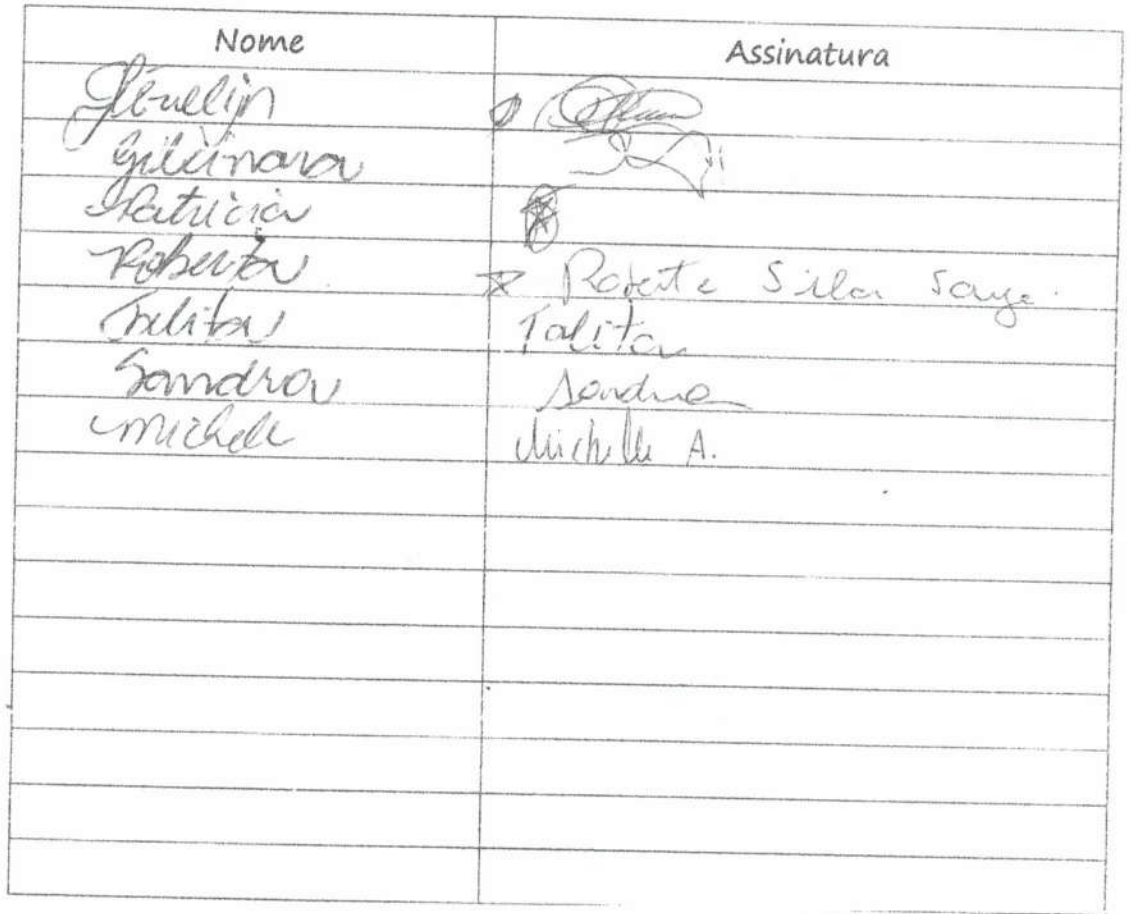 Nome Assinatura
Gilcimara
Patricia
Roberta Roberta Silva
Talita Talita
Sandra Sandra
Michele Michelle A.